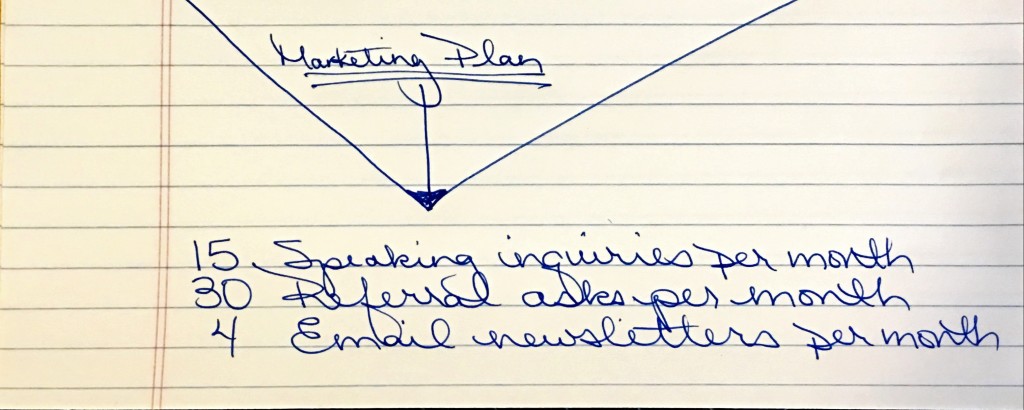 Marketing Plan
15 Speaking inquiries per month
30 Referral asks per month
4 Email newsletters per month